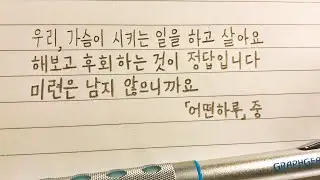 우리, 가슴이 시키는 일을 하고 살아요
해보고 후회하는 것이 정답입니다
미련은 남지 않으니까요
「어떤하루」 중
GRAPHGEAR